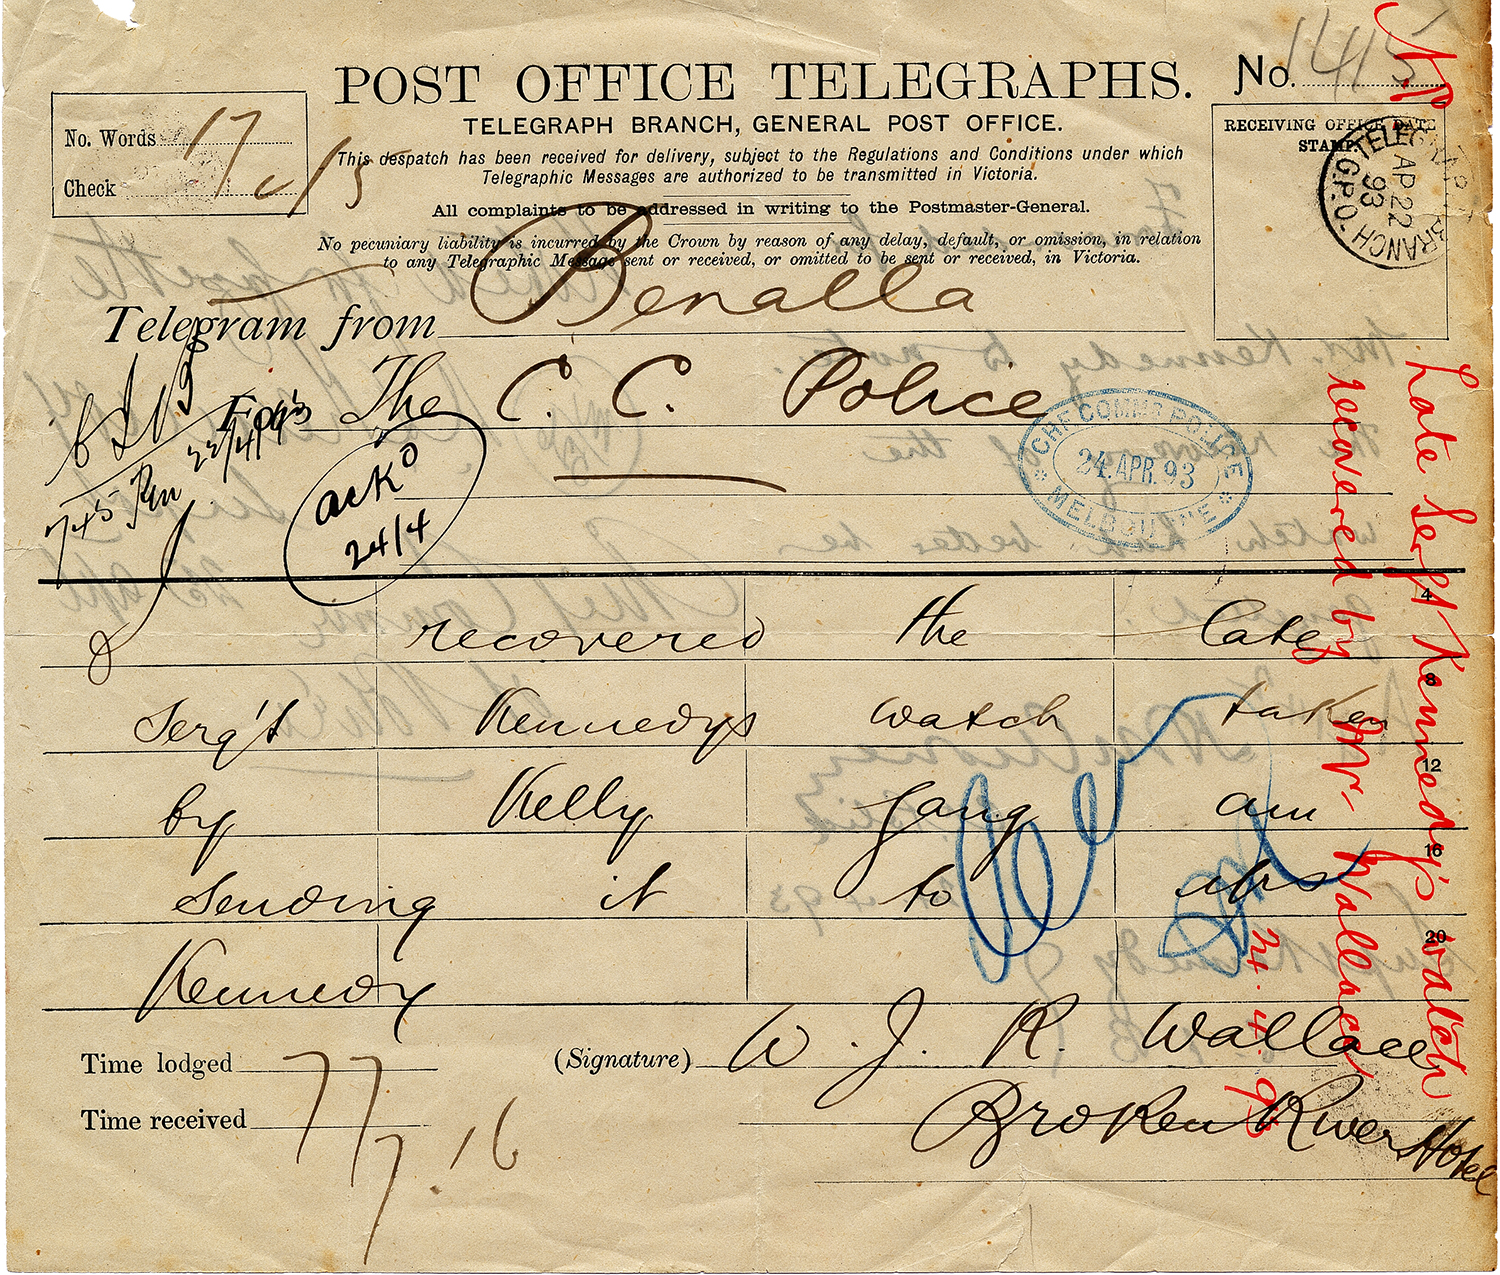 No. 1415
POST OFFICE TELEGRAPHS.
TELEGRAPH BRANCH, GENERAL POST OFFICE.
No. Words 17
Check
This despatch has been received for delivery, subject to the Regulations and Conditions under which
Telegraphic Messages are authorized to be transmitted in Victoria.
All complaints to be addressed in writing to the Postmaster-General.
No pecuniary liability is incurred by the Crown by reason of any delay, default, or omission, in relation
to any Telegraphic Message sent or received, or omitted to be sent or received, in Victoria.
RECEIVING OFFICE DATE
STAMP.
TELEGRAPH BRANCH G.P.O.
AP 22
93
Telegram from Benalla
For The C. C. Police
22/4/93
745 Pm
ack'd
24/4
CHF COMMR POLICE
24. APR. 93
MELBOURNE
4
I recovered the late
8
Serg't Kennedys watch taken
12
by Kelly gang am
16
sending it to Mrs
20
Kennedy
Time lodged 77
Time received 7.16
(Signature) W. J. R. Wallace
Broken River Hotel
Late Sergt Kennedy's watch
recovered by Mr. Wallace
24.4.93